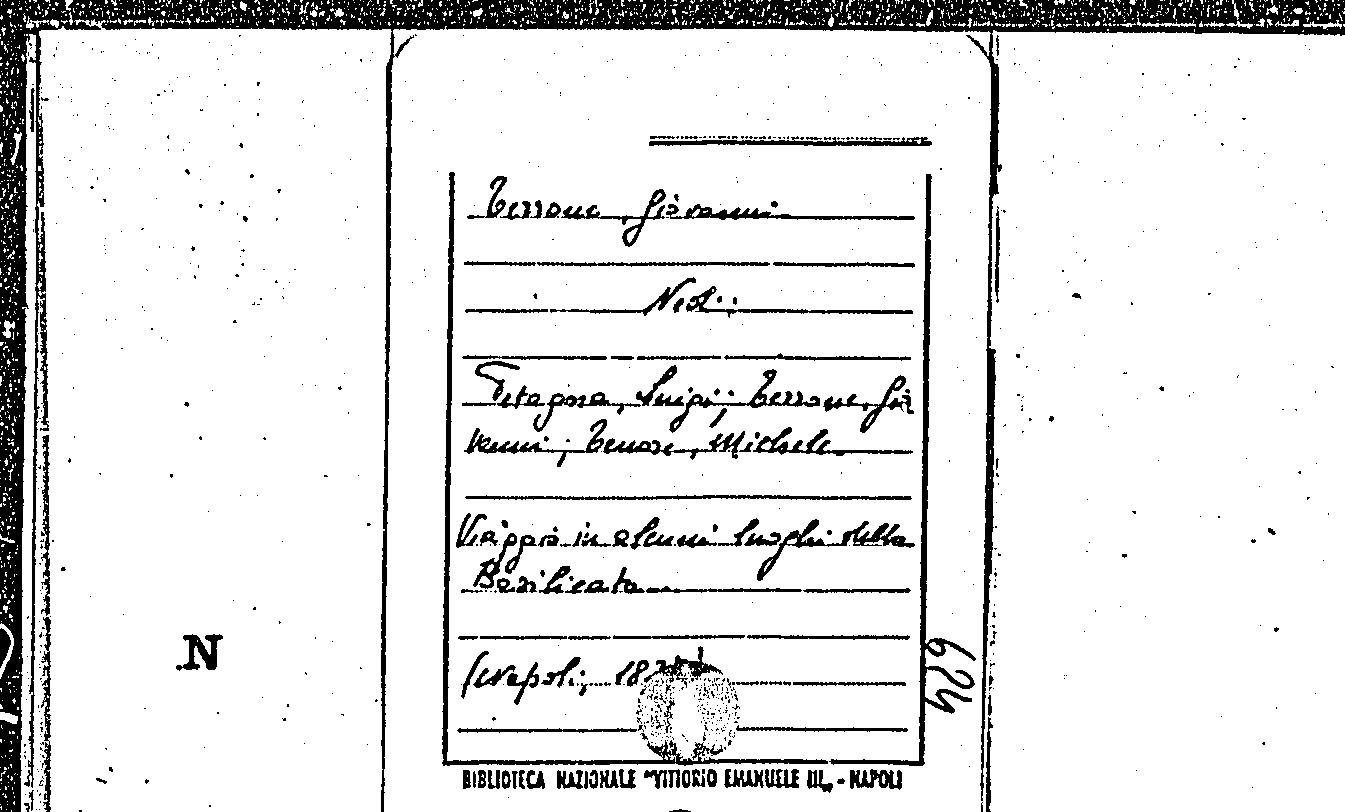 Terrone, Giovanni
Vedi:
Petagna, Luigi; Terrone, Gio
vanni; Tenore, Michele
Viaggio in alcuni luoghi della
Basilicata
N
(Napoli, 18
624
BIBLIOTECA NAZIONALE "VITTORIO EMANUELE III„ - NAPOLI